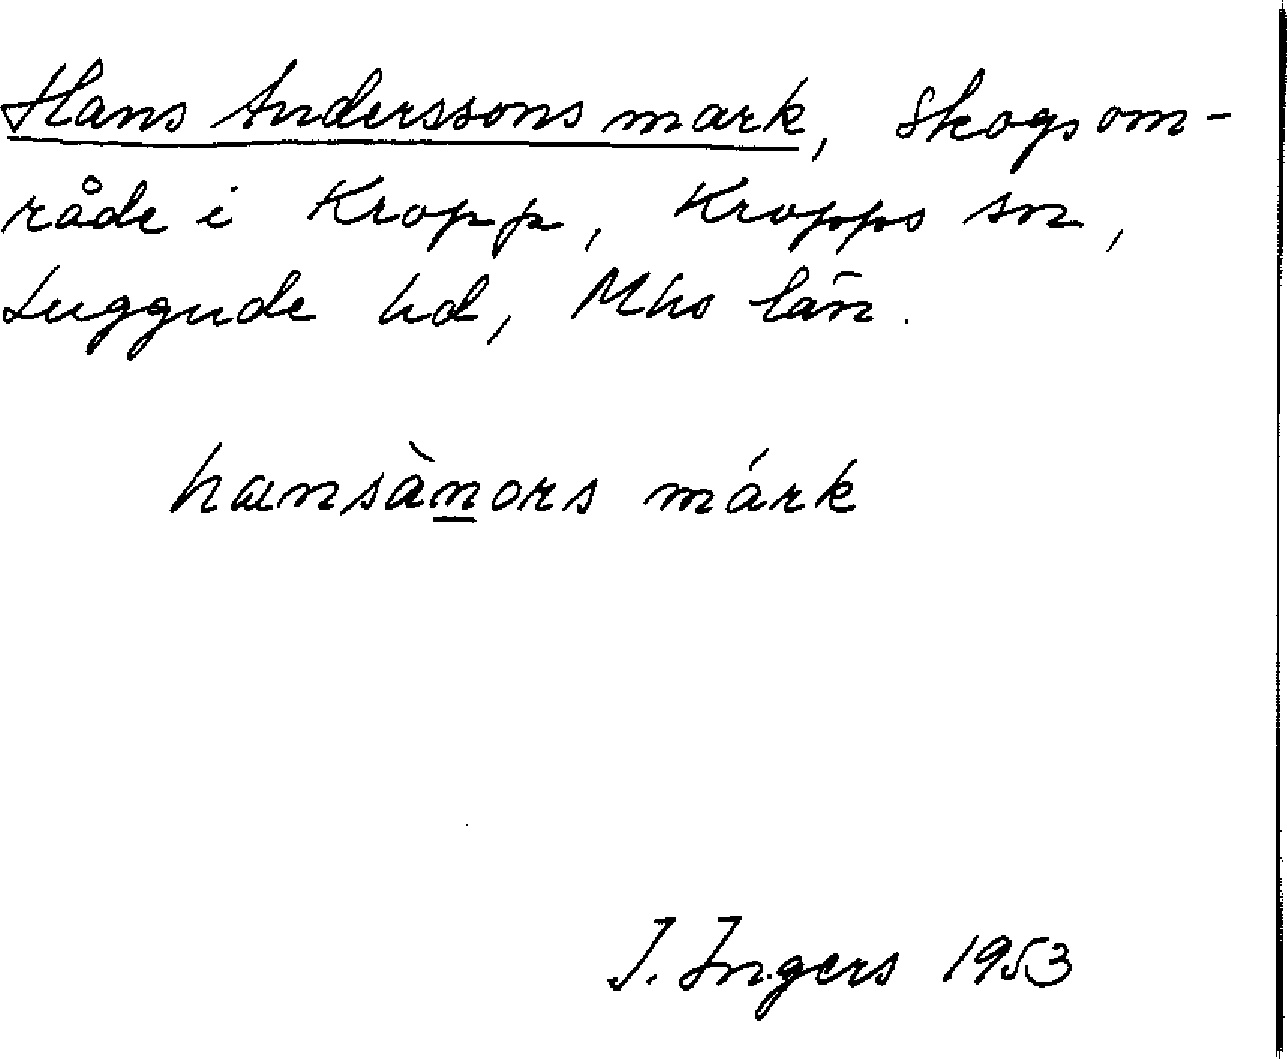 Hans Anderssons mark, skogsom-
råde i Kropp, Kropps sn,
Luggude hd, Mhs län.
hansànors márk
I. Ingers 1953